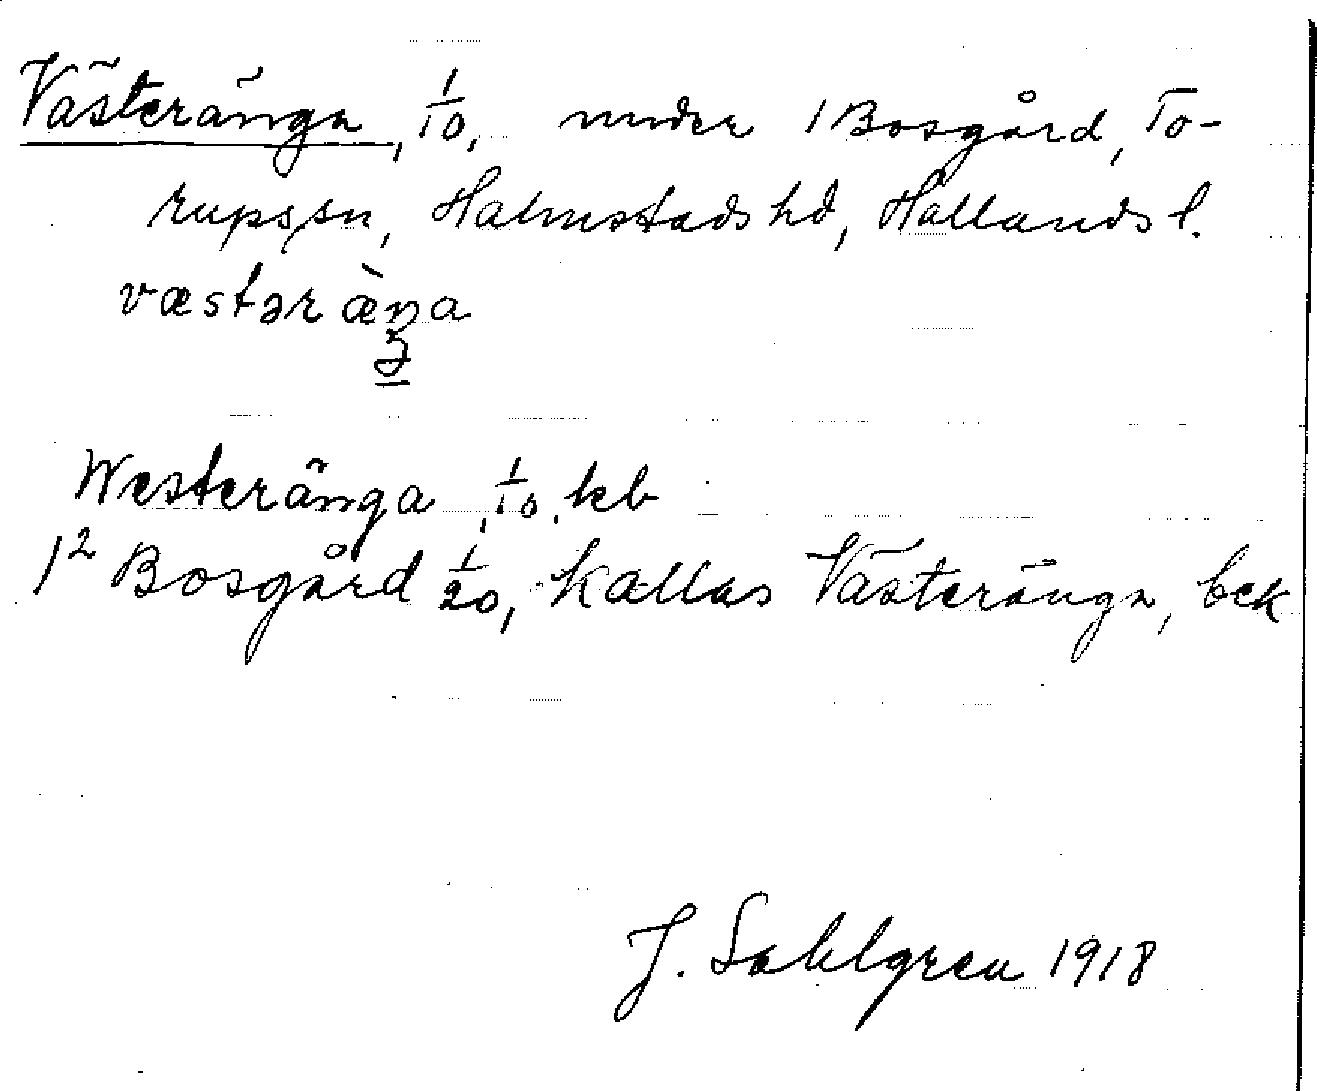 Västeränga, 1/10, under 1 Bosgård, To-
rups sn, Halmstads hd, Hallands l.
væstər æ̀ŋa
3
Westeränga, 1/10, kb
1² Bosgård 1/20, kallas Västeränga, bek
J. Sahlgren 1918